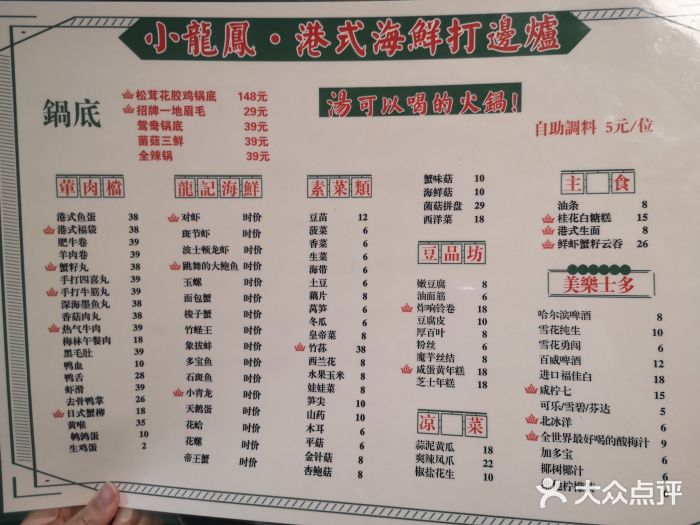 小龍鳳·港式海鮮打邊爐
鍋底
松茸花胶鸡锅底 148元
招牌一地眉毛 29元
鸳鸯锅底 39元
菌菇三鲜 39元
全辣锅 39元
湯可以喝的火鍋!
自助調料 5元/位
葷肉檔
港式鱼蛋 38
港式福袋 38
肥牛卷 39
羊肉卷 39
蟹籽丸 38
手打四喜丸 38
手打牛筋丸 38
深海墨鱼丸 38
香菇肉丸 38
热气牛肉 39
梅林午餐肉 18
黑毛肚 39
鸭血 10
鸭舌 28
虾滑 39
去骨鸭掌 26
日式蟹柳 18
黄喉 35
鹌鹑蛋 10
生鸡蛋 2
龍記海鮮
对虾 时价
斑节虾 时价
波士顿龙虾 时价
跳舞的大鲍鱼 时价
玉螺 时价
面包蟹 时价
梭子蟹 时价
竹蛏王 时价
象拔蚌 时价
多宝鱼 时价
石斑鱼 时价
小青龙 时价
天鹅蛋 时价
花蛤 时价
花螺 时价
帝王蟹 时价
素菜類
豆苗 12
菠菜 6
香菜 6
生菜 6
海带 6
土豆 6
藕片 8
莴笋 6
冬瓜 6
皇帝菜 8
竹荪 38
西兰花 8
水果玉米 8
娃娃菜 8
笋尖 10
山药 10
木耳 6
平菇 6
金针菇 8
杏鲍菇 8
蟹味菇 10
海鲜菇 10
菌菇拼盘 29
西洋菜 10
豆品坊
嫩豆腐 8
油面筋 6
炸响铃卷 18
豆腐皮 10
厚百叶 8
粉丝 6
魔芋丝结 8
咸蛋黄年糕 18
芝士年糕 18
凉菜
蒜泥黄瓜 18
爽辣凤爪 22
椒盐花生 10
主食
油条 8
桂花白糖糕 15
港式生面 8
鲜虾蟹籽云吞 26
美樂士多
哈尔滨啤酒 8
雪花纯生 10
雪花勇闯 6
百威啤酒 12
进口福佳白 18
咸柠七 15
可乐/雪碧/芬达 5
北冰洋 6
全世界最好喝的酸梅汁 9
加多宝 6
椰树椰汁 6
大众点评